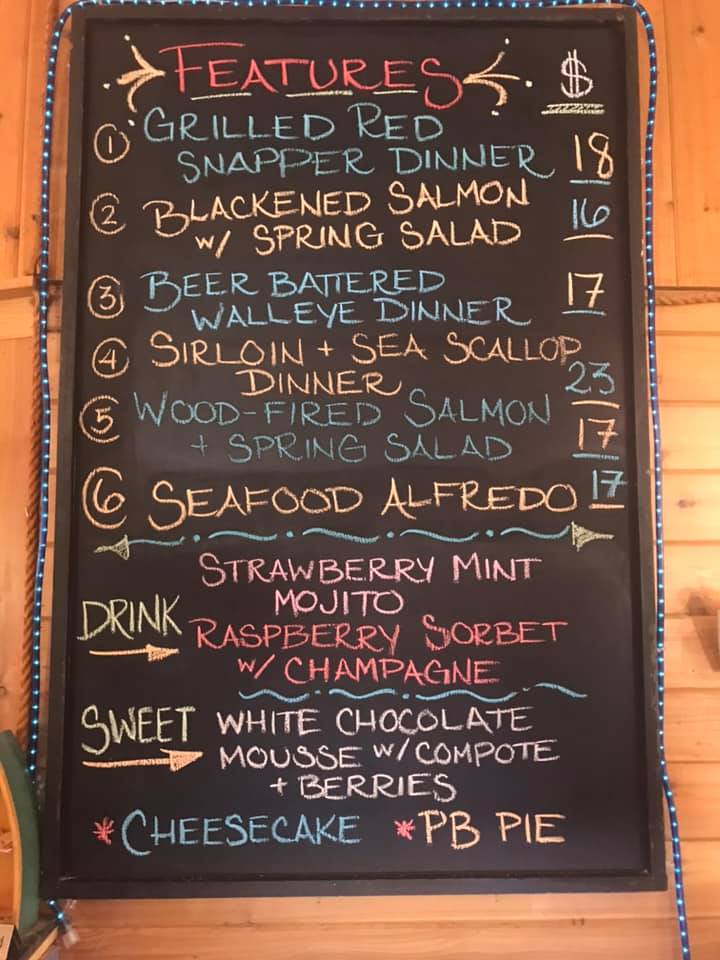 FEATURES $
1 GRILLED RED
SNAPPER DINNER 18
2 BLACKENED SALMON
w/ SPRING SALAD 16
3 BEER BATTERED
WALLEYE DINNER 17
4 SIRLOIN + SEA SCALLOP
DINNER 23
5 WOOD-FIRED SALMON
+ SPRING SALAD 17
6 SEAFOOD ALFREDO 17
STRAWBERRY MINT
MOJITO
DRINK RASPBERRY SORBET
w/ CHAMPAGNE
SWEET WHITE CHOCOLATE
MOUSSE w/ COMPOTE
+ BERRIES
* CHEESECAKE * PB PIE